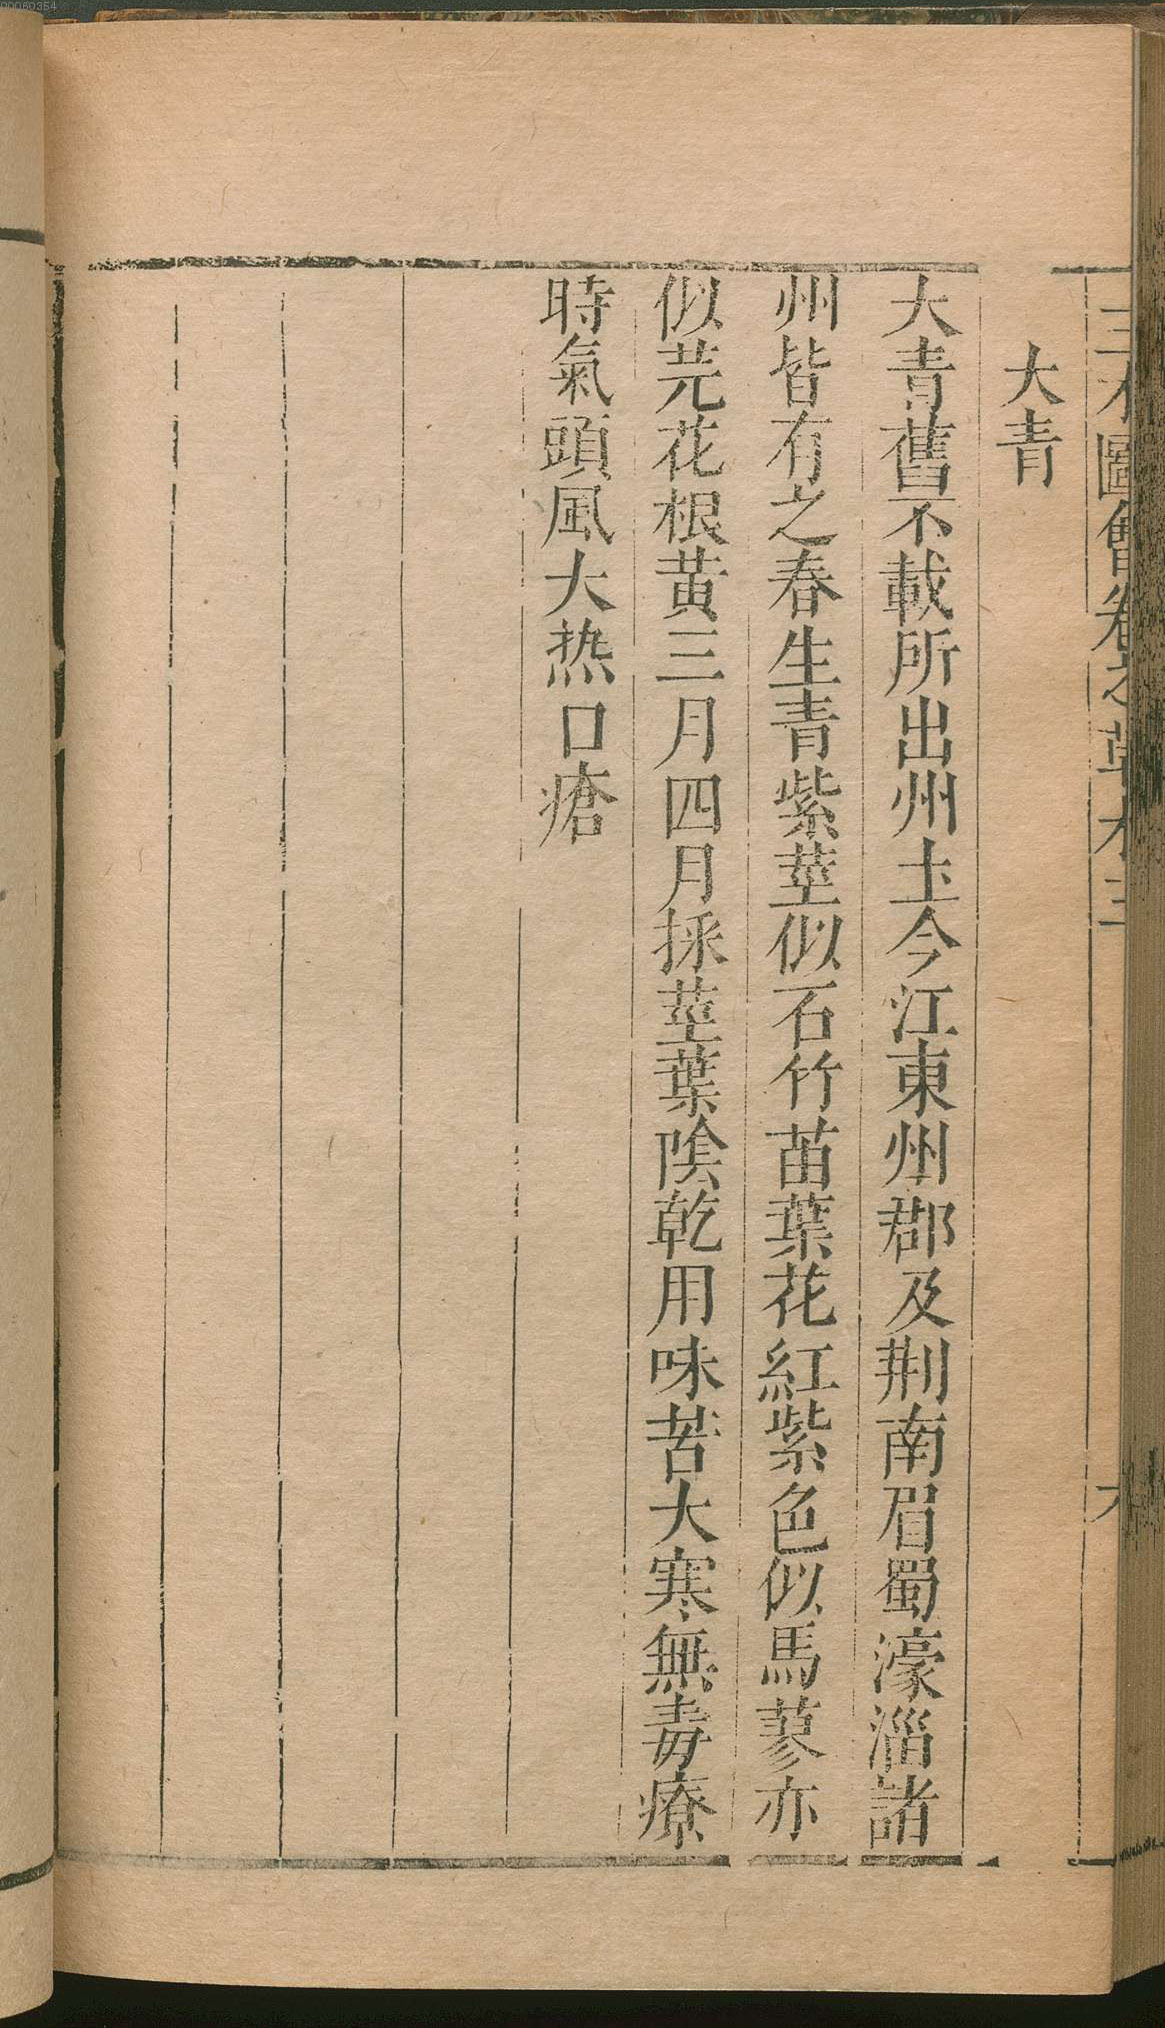 00060354
三才圖會卷之草木三
大青
大青舊不載所出州土今江東州郡及荆南眉蜀濠淄諸
州皆有之春生青紫莖似石竹苗葉花紅紫色似馬蓼亦
似芫花根黄三月四月採莖葉陰乾用味苦大寒無毒療
時氣頭風大热口瘡